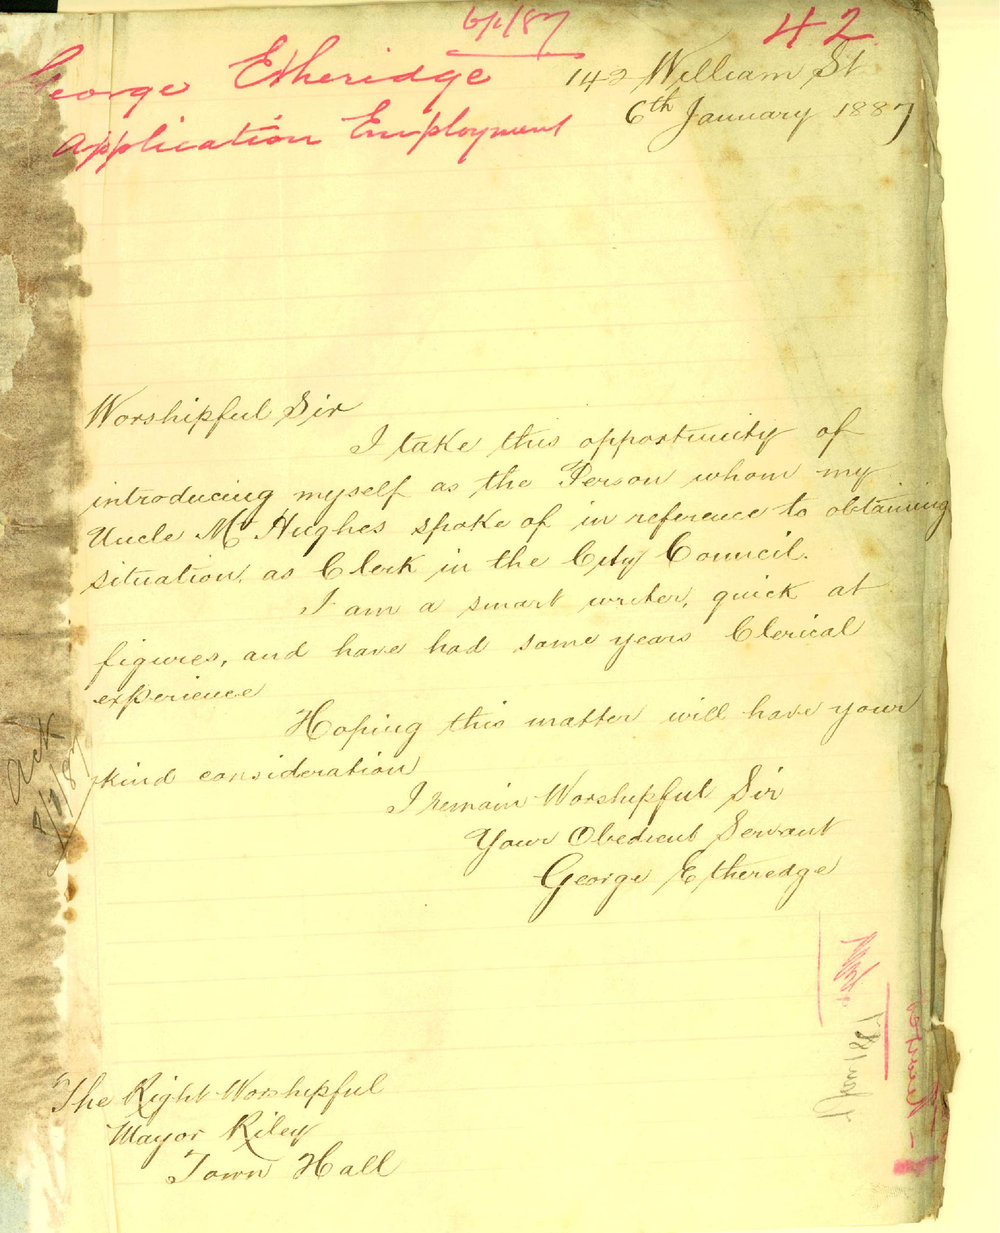 6/1/87
42
George Etheridge
Application Employment
142 William St
6th January 1887
Worshipful Sir
I take this opportunity of
introducing myself as the Person whom my
Uncle Mr Hughes spoke of in reference to obtaining
situation, as Clerk in the City Council.
I am a smart writer, quick at
figures, and have had some years Clerical
experience
Hoping this matter will have your
kind consideration
I remain Worshipful Sir
Your Obedient Servant
George Etheredge
Ack
The Right Worshipful
Mayor Riley
Town Hall